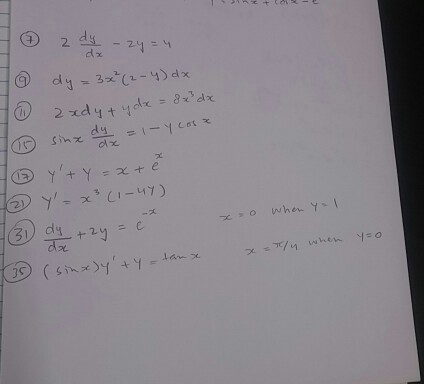 y = sinx + cosx - e
⑦ 2 dy/dx - 2y = 4
⑨ dy = 3x²(2-y)dx
⑪ 2xdy + ydx = 8x³dx
⑮ sinx dy/dx = 1 - y cosx
⑰ y' + y = x + e^x
㉑ y' = x³(1-4y)
㉛ dy/dx + 2y = e^-x x=0 when y=1
㉟ (sinx)y' + y = tanx x=π/4 when y=0